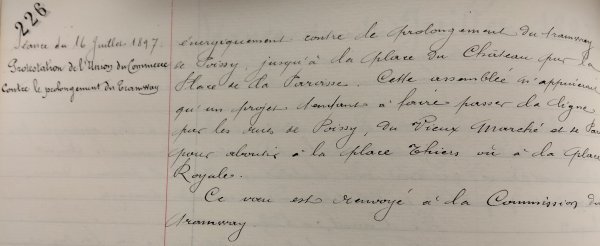 226
Séance du 16 Juillet 1897.
Protestation de l'Union du Commerce
contre le prolongement du Tramway
énergiquement contre le prolongement du tramway
de Poissy, jusqu'à la place du Château par la
Place de la Paroisse. Cette assemblée n'appuierait
qu'un projet tendant à faire passer la ligne
par les rues de Poissy, du Vieux Marché et de
pour aboutir à la place Thiers ou à la place
Royale.
Ce vœu est renvoyé à la Commission du
tramway.